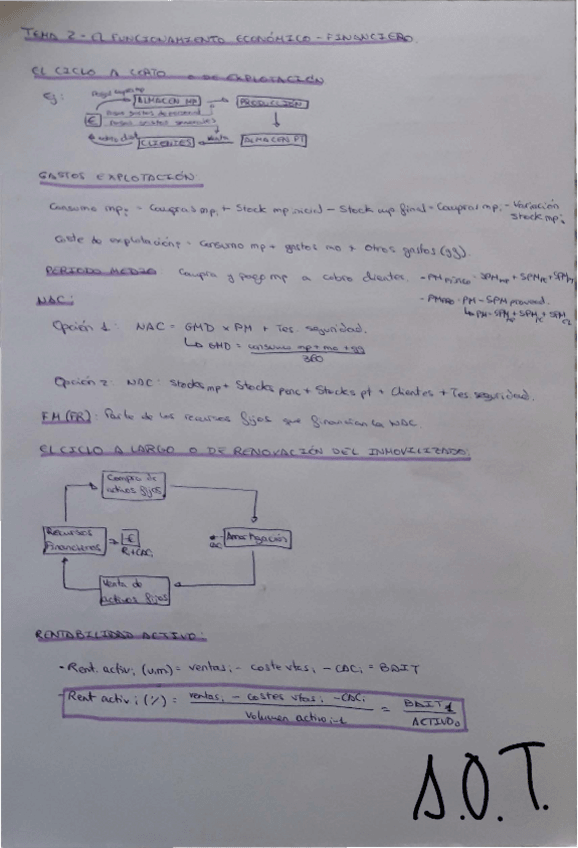 TEMA 2 - EL FUNCIONAMIENTO ECONÓMICO - FINANCIERO.
EL CICLO A CORTO O DE EXPLOTACIÓN
Ej:
ALMACEN MP
PRODUCCIÓN
€
CLIENTES
Venta
ALMACEN PT
GASTOS EXPLOTACIÓN:
Consumo mpi = Compras mpi + Stock mp inicial - Stock mp final = Compras mpi - Variación
Stock mpi
Coste de explotación = Consumo mp + gastos mo + Otros gastos (gg).
PERIODO MEDIO Compra y pago mp a cobro clientes.
NAC:
Opción 1: NAC = GMD x PM + Tes. seguridad.
↳ GMD = consumo mp + mo + gg
360
Opción 2: NAC: Stocks mp + Stocks penc + Stocks pt + Clientes + Tes. seguridad.
FM (FR): Parte de los recursos fijos que financian la NAC
EL CICLO A LARGO O DE RENOVACIÓN DEL INMOVILIZADO:
Compra de
activos fijos
Recursos
Financieros
€
Amortización
Venta de
activos fijos
RENTABILIDAD ACTIVO:
- Rent. activi (u.m) = ventasi - coste vtasi - CACi = BAIT
- Rent activi (%) = ventasi - costes vtasi - CACi = BAIT1
Volumen activoi-1 ACTIVO0
A.O.T.